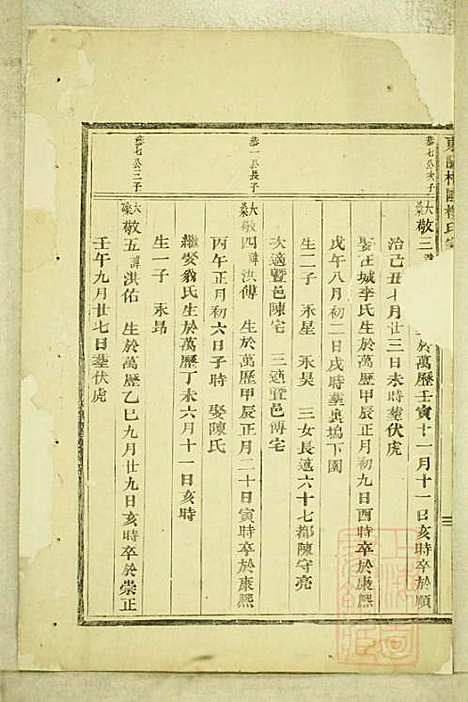 恭七公次子
大 敬三
於萬歷壬寅十一月十一日亥時卒於順
治己丑七月廿三日未時塟伏虎
娶在城李氏生於萬歷甲辰正月初九日酉時卒於康熙
戊午八月初二日戌時塟奥塢下園
生二子 永星 永昊 三女長適六十七都陳守亮
次適暨邑陳宅 三適暨邑傅宅
恭一公長子
大 敬四諱洪傅 生於萬歷甲辰正月二十日寅時卒於康熙
丙午正月初六日子時 娶陳氏
繼娶翁氏生於萬歷丁未六月十一日亥時
生一子 永昻
恭七公三子
大 敬五諱洪佑 生於萬歷乙巳九月廿九日亥時卒於崇正
壬午九月廿七日塟伏虎